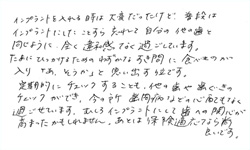 インプラントを入れる時は大変だったけど、普段は
インプラントにしたことすら忘れて自分の他の歯と
同じように、全く違和感なく過ごしています。
たまにひっかけるためのわずかなすき間に食べものが
入り「あ、そうか」と思い出す位です。
定期的にチェックすることで、他の歯や歯ぐきの
チェックができ、今の所 歯周病などの心配もなく
過ごせています。むしろインプラントにして歯への関心が
高まったかもしれません。あとは保険適応なら尚
良いです。